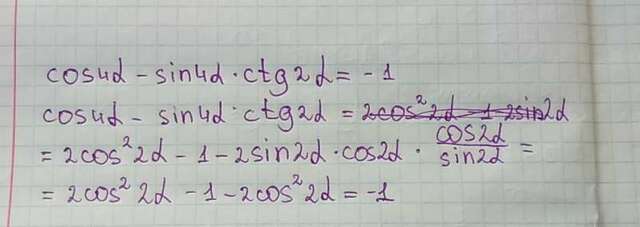 cos4α - sin4α · ctg2α = -1
cos4α - sin4α · ctg2α = 2cos²2α - 1 - 2sin2α
= 2cos²2α - 1 - 2sin2α · cos2α · cos2α/sin2α =
= 2cos²2α - 1 - 2cos²2α = -1